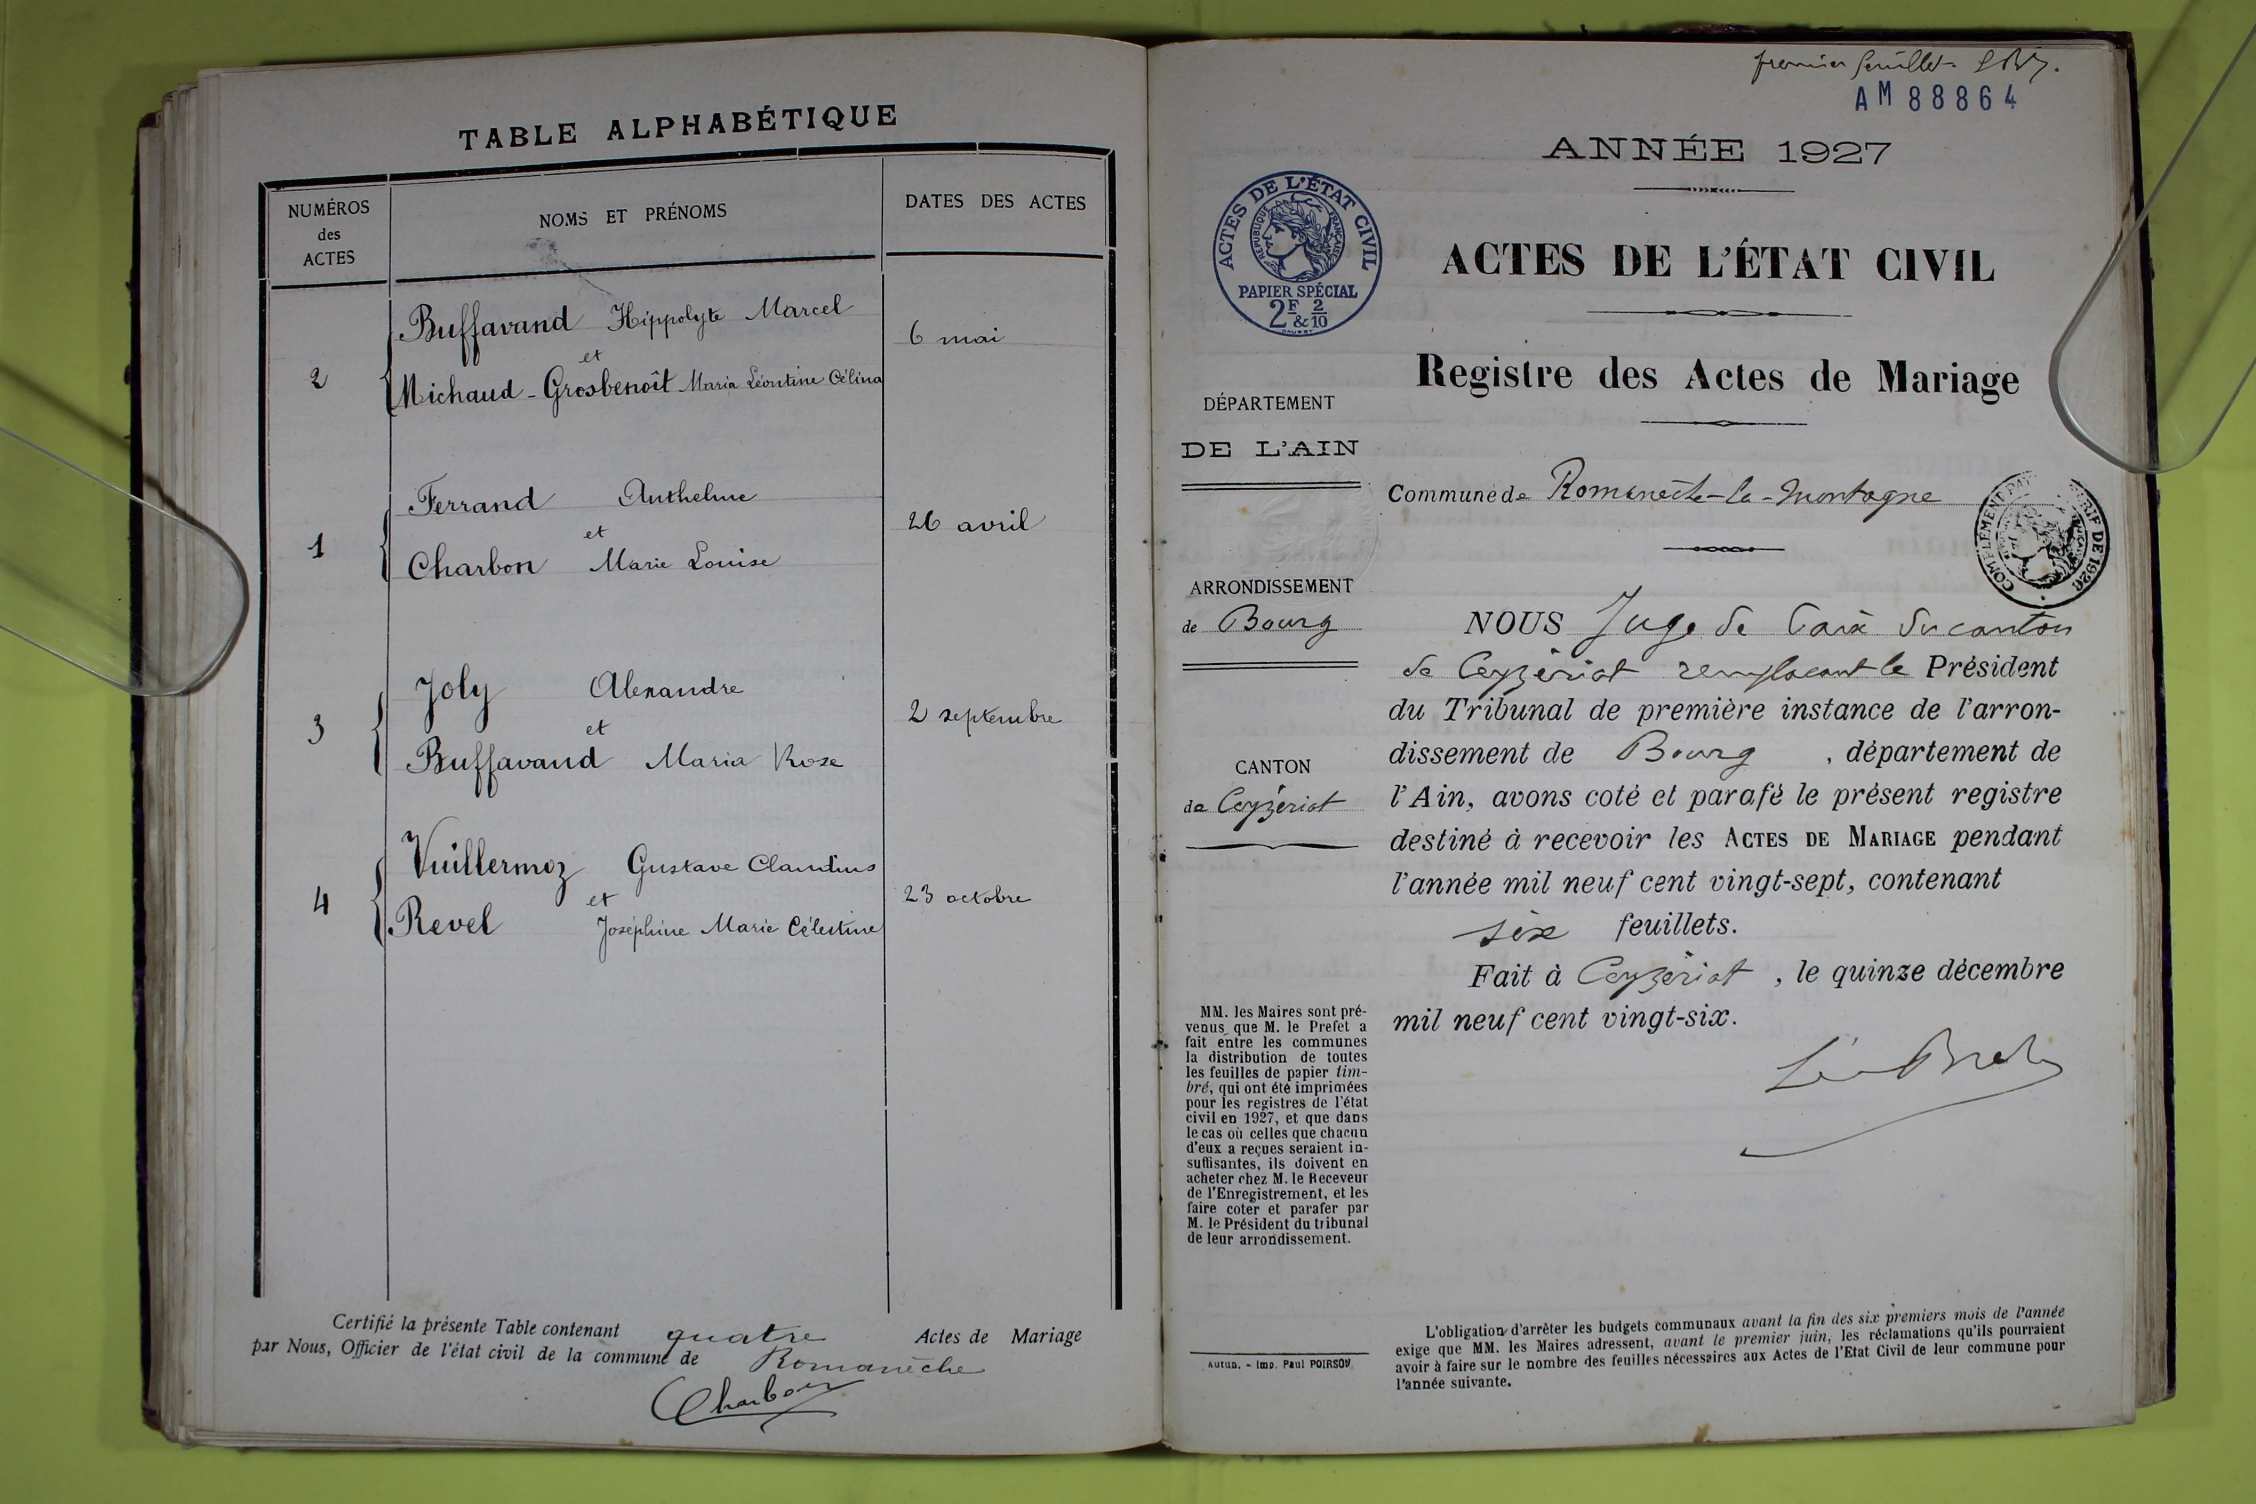 TABLE ALPHABÉTIQUE
NUMÉROS
des
ACTES
NOMS ET PRÉNOMS
DATES DES ACTES
Buffavand Hippolyte Marcel
et
2
6 mai
Michaud-Grosbenoît Maria Léontine Célina
Ferrand Anthelme
et
1
26 avril
Charbon Marie Louise
Joly Alexandre
et
3
2 septembre
Buffavand Maria Rose
Vuillermoz Gustave Claudius
et
4
23 octobre
Revel Joséphine Marie Célestine
Certifié la présente Table contenant quatre Actes de Mariage
par Nous, Officier de l'état civil de la commune de Romanèche
Charbon
premier feuillet
AM 88864
ANNÉE 1927
ACTES DE L'ÉTAT CIVIL
RÉPUBLIQUE FRANÇAISE
PAPIER SPÉCIAL
2F & 2/10
ACTES DE L'ÉTAT CIVIL
Registre des Actes de Mariage
DÉPARTEMENT
DE L'AIN
Commune de Romanèche-la-Montagne
ARRONDISSEMENT
de Bourg
CANTON
de Ceyzériat
NOUS Juge de Paix du canton
de Ceyzériat remplaçant le Président
du Tribunal de première instance de l'arron-
dissement de Bourg, département de
l'Ain, avons coté et parafé le présent registre
destiné à recevoir les ACTES DE MARIAGE pendant
l'année mil neuf cent vingt-sept, contenant
six feuillets.
Fait à Ceyzériat, le quinze décembre
mil neuf cent vingt-six.
MM. les Maires sont pré-
venus que M. le Prefet a
fait entre les communes
la distribution de toutes
les feuilles de papier tim-
bré, qui ont été imprimées
pour les registres de l'état
civil en 1927, et que dans
le cas où celles que chacun
d'eux a reçues seraient in-
suffisantes, ils doivent en
acheter chez M. le Receveur
de l'Enregistrement, et les
faire coter et parafer par
M. le Président du tribunal
de leur arrondissement.
Autun. - Imp. Paul POIRSON
L'obligation d'arrêter les budgets communaux avant la fin des six premiers mois de l'année
exige que MM. les Maires adressent, avant le premier juin, les réclamations qu'ils pourraient
avoir à faire sur le nombre des feuilles nécessaires aux Actes de l'Etat Civil de leur commune pour
l'année suivante.